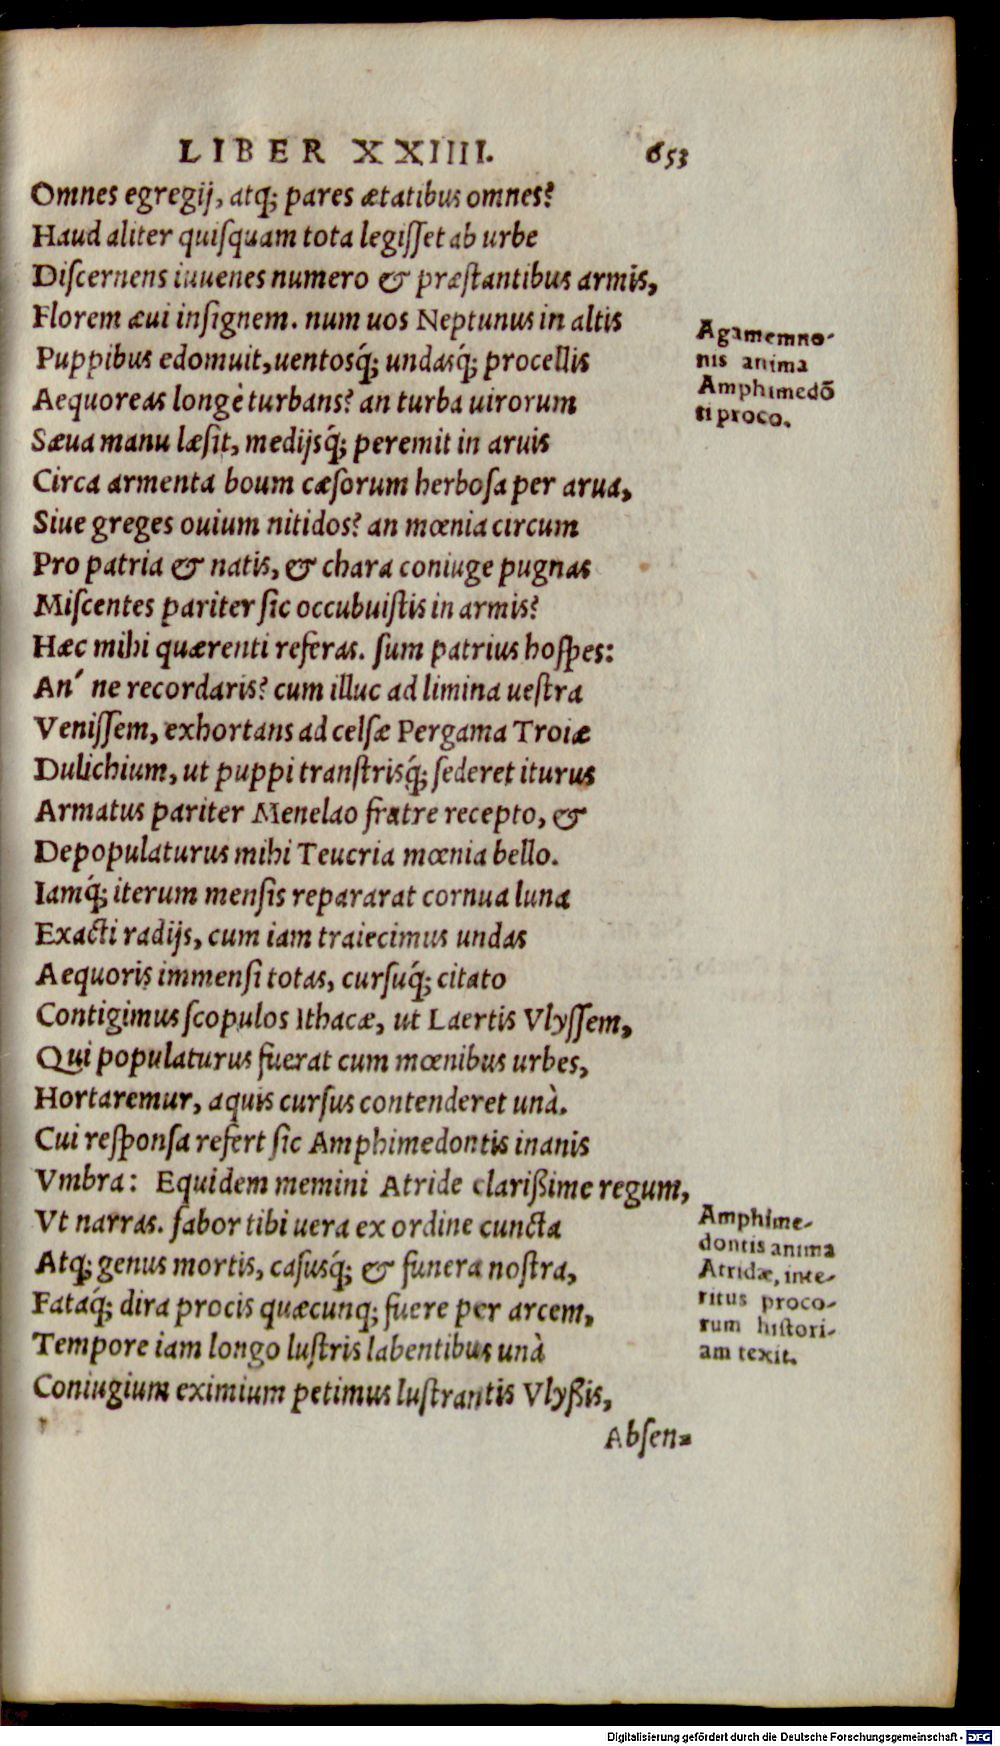 LIBER XXIIII. 653
Omnes egregij, atq; pares ætatibus omnes?
Haud aliter quiſquam tota legiſſet ab urbe
Diſcernens iuuenes numero & præſtantibus armis,
Florem æui inſignem. num uos Neptunus in altis
Puppibus edomuit, uentosq́; undasq́; procellis
Aequoreas longè turbans? an turba uirorum
Sæua manu læſit, medijsq́; peremit in aruis
Circa armenta boum cæſorum herboſa per arua,
Siue greges ouium nitidos? an mœnia circum
Pro patria & natis, & chara coniuge pugnas
Miſcentes pariter ſic occubuiſtis in armis?
Hæc mihi quærenti referas. ſum patrius hoſpes:
An' ne recordaris? cum illuc ad limina ueſtra
Veniſſem, exhortans ad celſæ Pergama Troiæ
Dulichium, ut puppi transtrisq́; ſederet iturus
Armatus pariter Menelao fratre recepto, &
Depopulaturus mihi Teucria mœnia bello.
Iamq́; iterum menſis repararat cornua luna
Exacti radijs, cum iam traiecimus undas
Aequoris immenſi totas, curſuq́; citato
Contigimus ſcopulos Ithacæ, ut Laertis Vlyſſem,
Qui populaturus fuerat cum mœnibus urbes,
Hortaremur, aquis curſus contenderet unà.
Cui reſponſa refert ſic Amphimedontis inanis
Vmbra: Equidem memini Atride clarißime regum,
Vt narras. fabor tibi uera ex ordine cuncta
Atq; genus mortis, caſusq́; & funera noſtra,
Fataq́; dira procis quæcunq; fuere per arcem,
Tempore iam longo luſtris labentibus unà
Coniugium eximium petimus luſtrantis Vlyßis,
Abſen-
Agamemno-
nis anima
Amphimedō
ti proco.
Amphime-
dontis anima
Atridæ, inte-
ritus proco-
rum histori-
am texit.
Digitalisierung gefördert durch die Deutsche Forschungsgemeinschaft - DFG